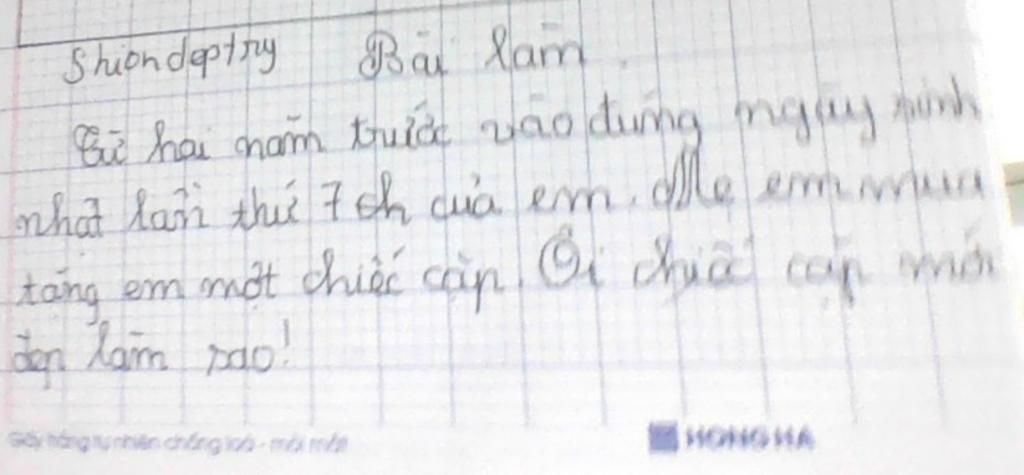 Shiondeptry Bài làm
Từ hai năm trước vào đúng ngày sinh
nhật lần thứ 7 ch của em. Mẹ em mua
tặng em một chiếc cặp. Ôi chiếc cặp mới
đẹp làm sao!
Giấy trắng tự nhiên chống loá - mỏi mắt HONG HA